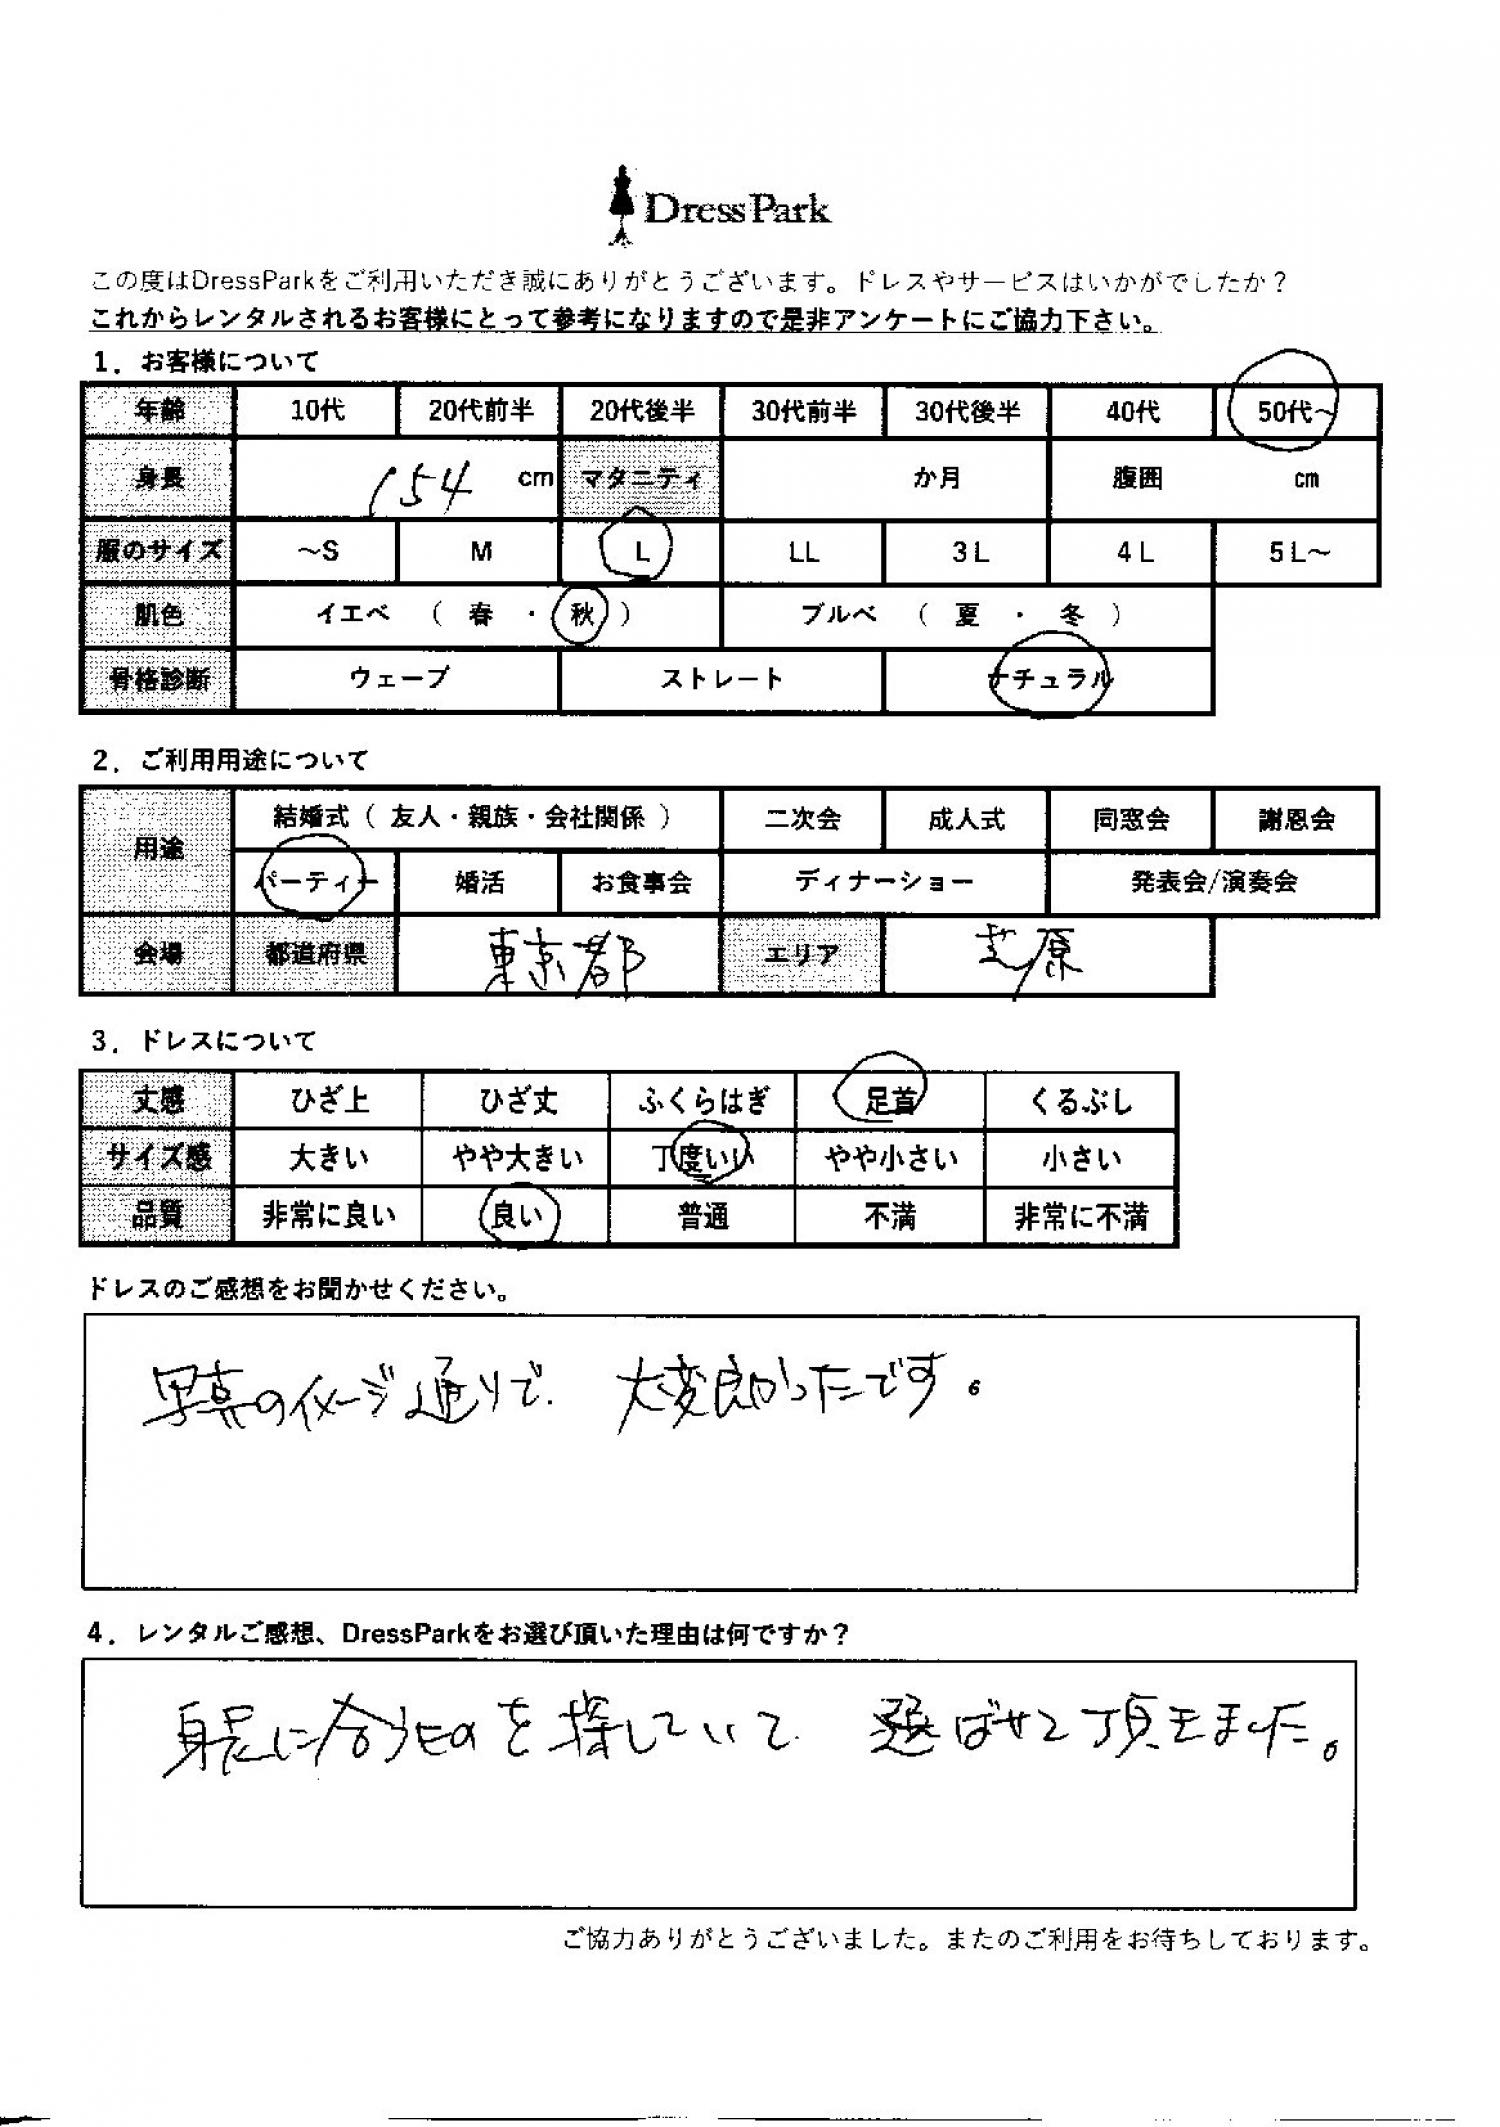 DressPark
この度はDressParkをご利用いただき誠にありがとうございます。ドレスやサービスはいかがでしたか？
これからレンタルされるお客様にとって参考になりますので是非アンケートにご協力下さい。
1．お客様について
年齢 10代 20代前半 20代後半 30代前半 30代後半 40代 50代～
身長 154 cm マタニティ か月 腹囲 cm
服のサイズ ～S M L LL 3L 4L 5L～
肌色 イエベ （ 春 ・ 秋 ） ブルベ （ 夏 ・ 冬 ）
骨格診断 ウェーブ ストレート ナチュラル
2．ご利用用途について
用途 結婚式（ 友人・親族・会社関係 ） 二次会 成人式 同窓会 謝恩会
パーティー 婚活 お食事会 ディナーショー 発表会/演奏会
会場 都道府県 東京都 エリア
3．ドレスについて
丈感 ひざ上 ひざ丈 ふくらはぎ 足首 くるぶし
サイズ感 大きい やや大きい 丁度いい やや小さい 小さい
品質 非常に良い 良い 普通 不満 非常に不満
ドレスのご感想をお聞かせください。
写真のイメージ通りで、大変良かったです。
4．レンタルご感想、DressParkをお選び頂いた理由は何ですか？
身長に合うものを探していて、選ばせて頂きました。
ご協力ありがとうございました。またのご利用をお待ちしております。